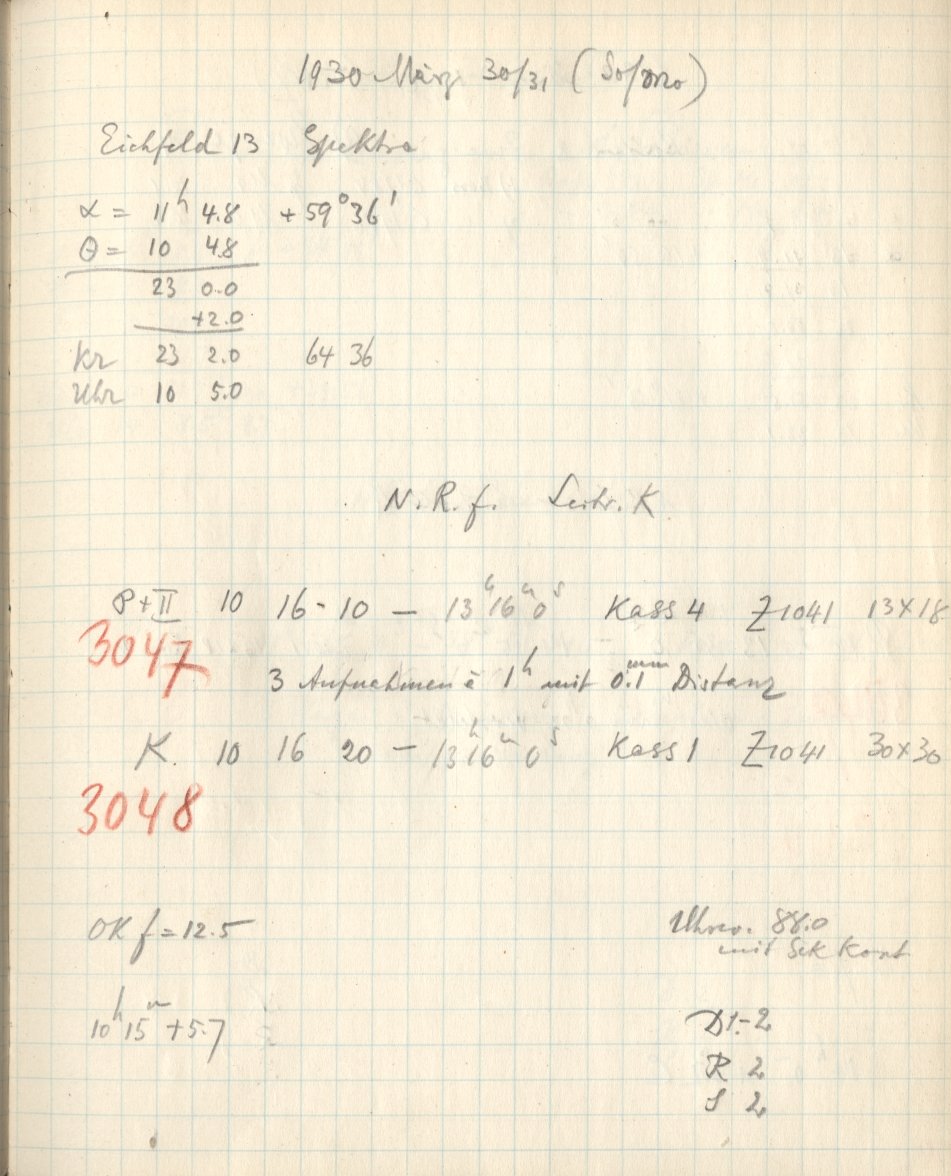 1930 März 30/31 (So/Mo)
Eichfeld 13 Spektra
α = 11h 4.8 +59°36'
θ = 10 4.8
23 0.0
+2.0
Kr 23 2.0 64 36
Uhr 10 5.0
N.R.f. Leitr. K
P+II 10 16-10 — 13h16m0s Kass 4 Z1041 13×18
3047
3 Aufnahmen à 1h mit 0.1mm Distanz
K. 10 16 20 — 13h16m0s Kass 1 Z1041 30×30
3048
OK f = 12.5
Uhrv. 88.0
mit Sek Kont
10h15m +5.7
D 1-2
R 2
S 2